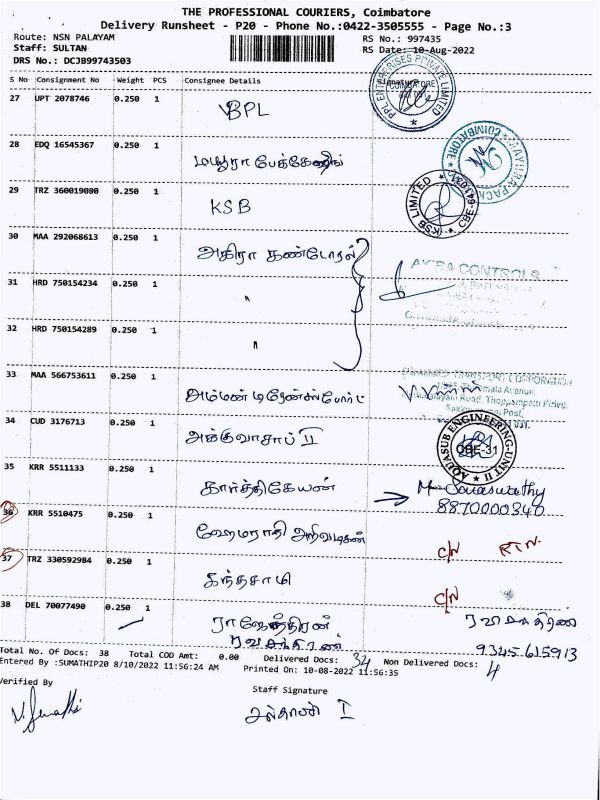 THE PROFESSIONAL COURIERS, Coimbatore
Delivery Runsheet - P20 - Phone No.:0422-3505555 - Page No.:3
Route: NSN PALAYAM RS No.: 997435
Staff: SULTAN RS Date: 10-Aug-2022
DRS No.: DCJB99743503
S No Consignment No Weight PCS Consignee Details Signature
27 UPT 2078746 0.250 1
BPL
PPL ENTERPRISES PRIVATE LIMITED
COIMBATORE
28 EDQ 16545367 0.250 1
மயூரா பேக்கேஜிங்
COIMBATORE
29 TRZ 360019080 0.250 1
KSB
KSB LIMITED
30 MAA 292068613 0.250 1
அகிரா கண்ட்ரோல்
CONTROLS
31 HRD 750154234 0.250 1
"
32 HRD 750154289 0.250 1
"
33 MAA 566753611 0.250 1
அம்மன் டிரேன்ஸ்போர்ட்
TRANSPORT CORPORATION
34 CUD 3176713 0.250 1
அக்குவாசப் II
AQUASUB ENGINEERING-UNIT II
CBE-31
35 KRR 5511133 0.250 1
கார்த்திகேயன்
M Saraswathy
8870000340
36 KRR 5510475 0.250 1
C/N RTN.
37 TRZ 330592984 0.250 1
கந்தசாமி
C/N
38 DEL 70077490 0.250 1
ராஜேந்திரன்
ரவிசந்திரன்
9345615913
Total No. Of Docs: 38 Total COD Amt: 0.00 Delivered Docs: 34 Non Delivered Docs: 4
Entered By :SUMATHIP20 8/10/2022 11:56:24 AM Printed On: 10-08-2022 11:56:35
Verified By
Staff Signature